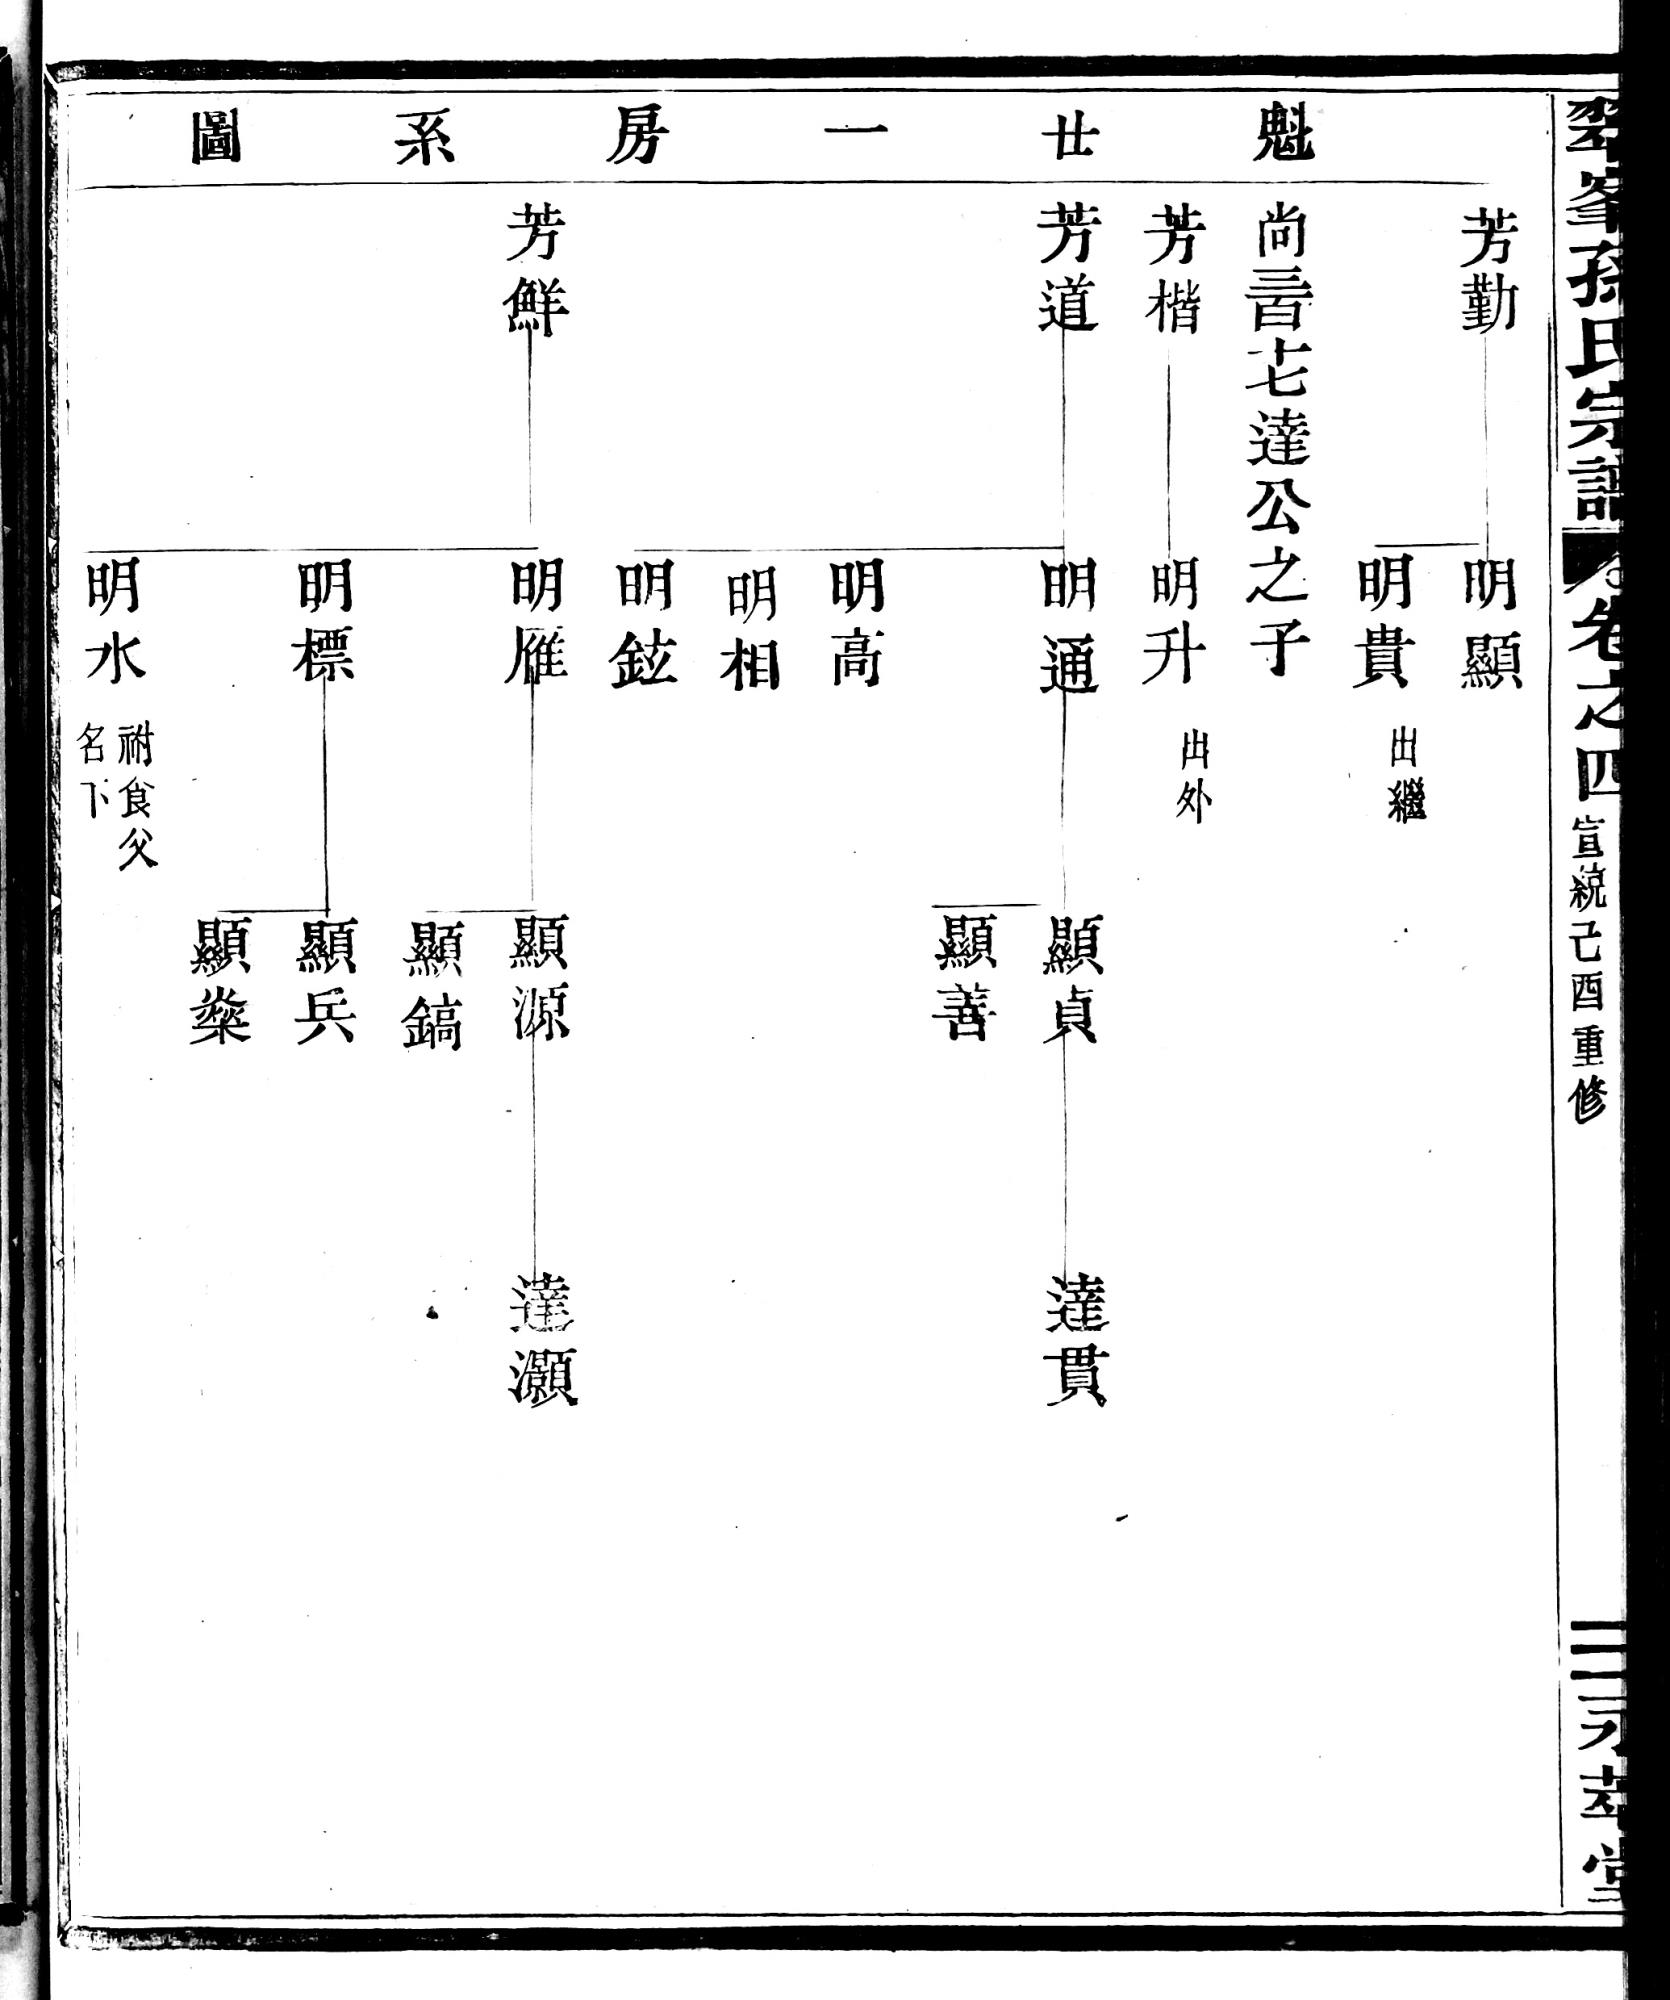 翠峯孫氏宗譜
卷之四
宣統己酉重修
二
永萃堂
魁廿一房系圖
芳勤
尚三百七達公之子
芳楷
芳道
芳鮮
明顯
明貴 出繼
明升 出外
明通
明高
明相
明鉉
明雁
明標
明水 祔食父
名下
顯貞
顯善
顯源
顯鎬
顯兵
顯燊
達貫
達灝